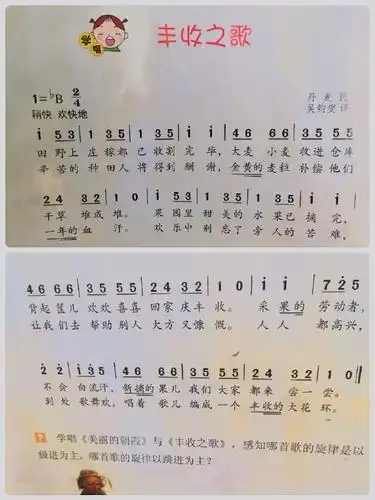 学唱
丰收之歌
1=♭B 2/4
稍快 欢快地
丹 麦 民 歌
吴钧燮 译
i 5 3 | 1 3 5 | 1 3 5 | i i | 4 6 6 6 | 3 5 5 5
田野上 庄稼都 已收割 完毕, 大麦 小麦 收进 仓库
辛苦的 种田人 将得到 酬谢, 金黄的 麦粒 补偿 他们
2 4 3 2 | 1 0 | i 5 3 | 1 3 5 | 1 3 5 | i i |
干草 堆成 堆。 果园里 甜美的 水果已 摘完,
一年的 血 汗。 欢乐中 别忘了 旁人的 苦难,
4 6 6 6 | 3 5 5 5 | 2 4 3 2 | 1 0 | i i | 7 2 5
背起 筐儿 欢欢 喜喜 回家 庆丰 收。 采 果的 劳动者,
让我 们去 帮助 别人 大方 又慷 慨。 人 人 都高兴,
2 2 | i 3 5 | 4 6 6 6 | 3 5 5 5 | 2 4 3 2 | 1 0 ‖
不会 白流汗, 我们 大家 都来 尝一 尝。
到处 歌舞欢, 唱着 歌儿 编成 一个 丰收的 大花 环。
学唱《美丽的朝霞》与《丰收之歌》, 感知哪首歌的旋律是以
级进为主, 哪首歌的旋律以跳进为主?